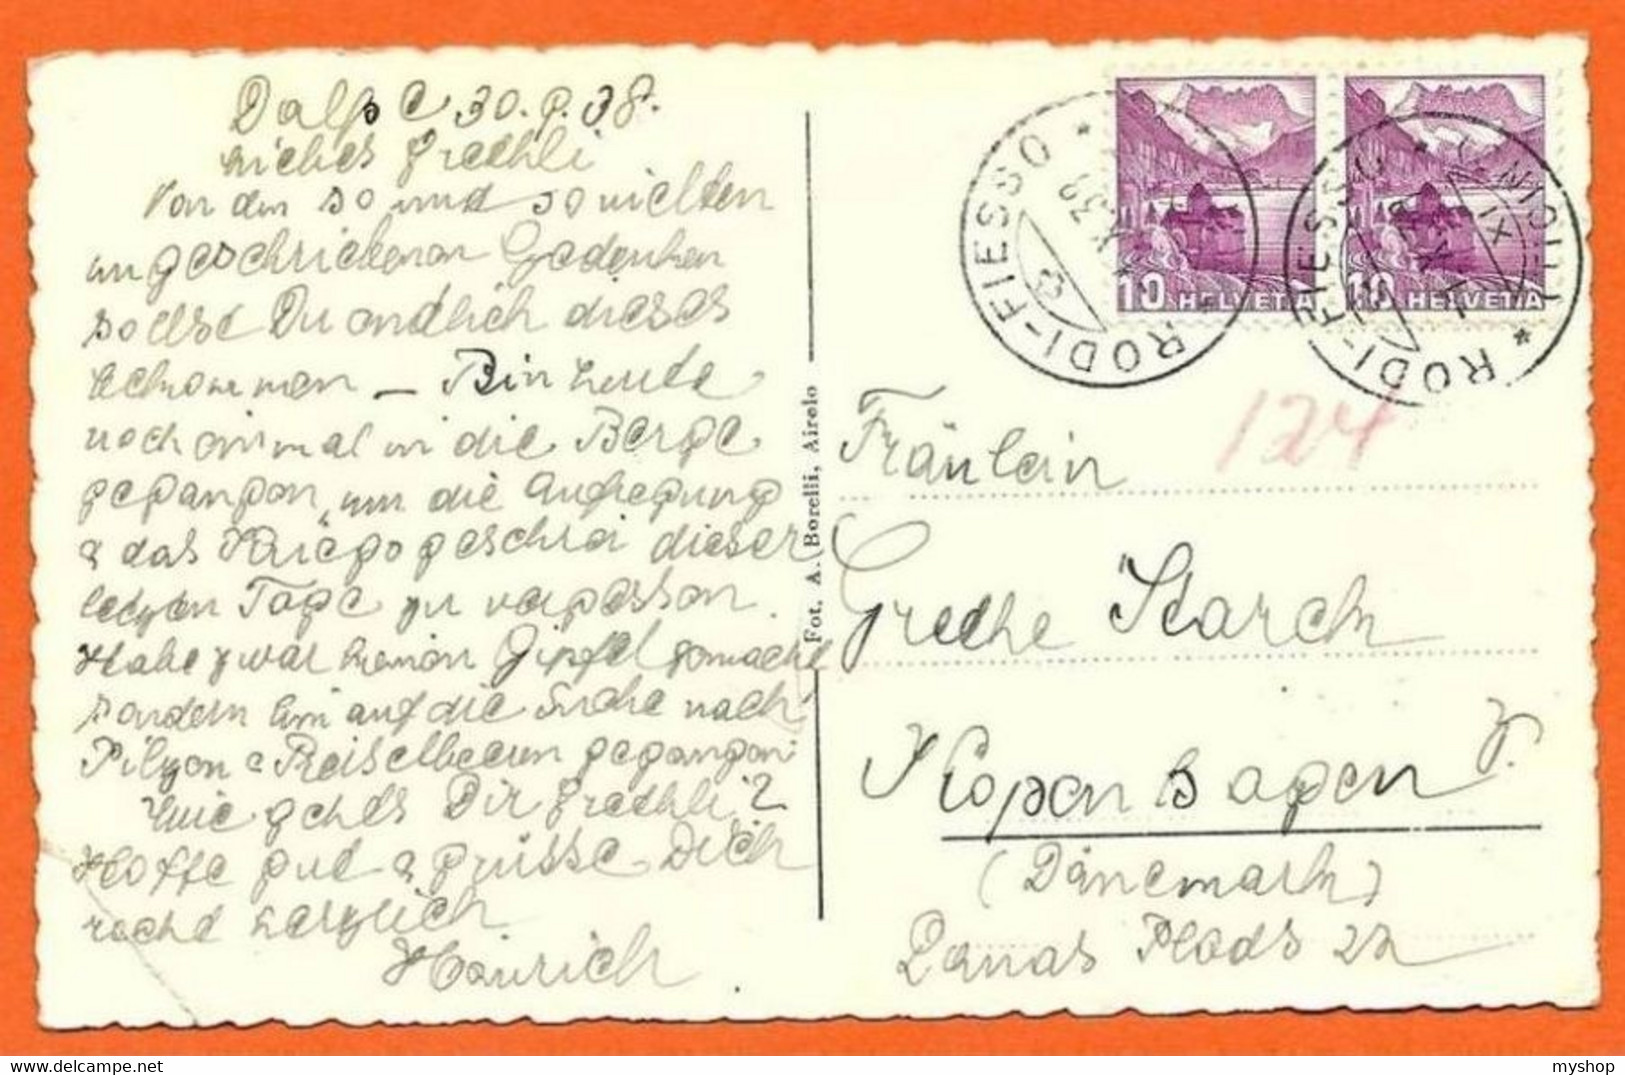 Dalpe 30.9.38.
Liebes Gredhli
Von den so und so vielten
ungeschriebenen Gedenken
sollst Du endlich dieses
bekommen – Bin heute
noch einmal in die Berge
gegangen, um die Aufregung
& das Kriegsgeschrei dieser
letzten Tage zu vergessen.
Habe zwar keinen Gipfel gemacht
sondern bin auf die Suche nach
Pilzen & Preiselbeeren gegangen
Wie geht's Dir Gredhli?
Hoffe gut & grüsse Dich
recht herzlich
Heinrich
Fot. A. Borelli, Airolo
RODI-FIESSO
10 HELVETIA
10 HELVETIA
RODI-FIESSO (TICINO)
124
Fräulein
Gredhe Starck
Kopenhagen V.
(Dänemark)
Danas Plads 22
myshop